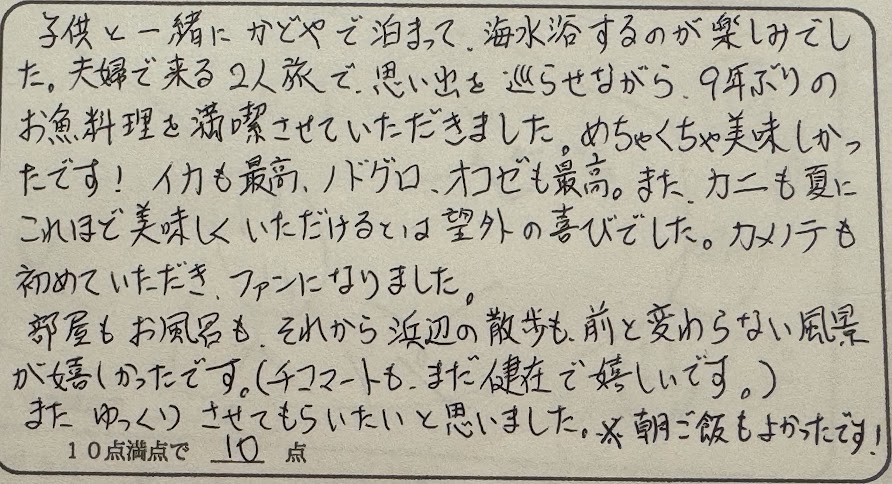 子供と一緒にかどやで泊まって、海水浴するのが楽しみでし
た。夫婦で来る2人旅で、思い出を巡らせながら、9年ぶりの
お魚料理を満喫させていただきました。めちゃくちゃ美味しかっ
たです！イカも最高、ノドグロ、オコゼも最高。また、カニも夏に
これほど美味しくいただけるとは望外の喜びでした。カメノテも
初めていただき、ファンになりました。
部屋もお風呂も、それから浜辺の散歩も、前と変わらない風景
が嬉しかったです。(チコマートも、まだ健在で嬉しいです。)
またゆっくりさせてもらいたいと思いました。※朝ご飯もよかったです!
10点満点で 10 点